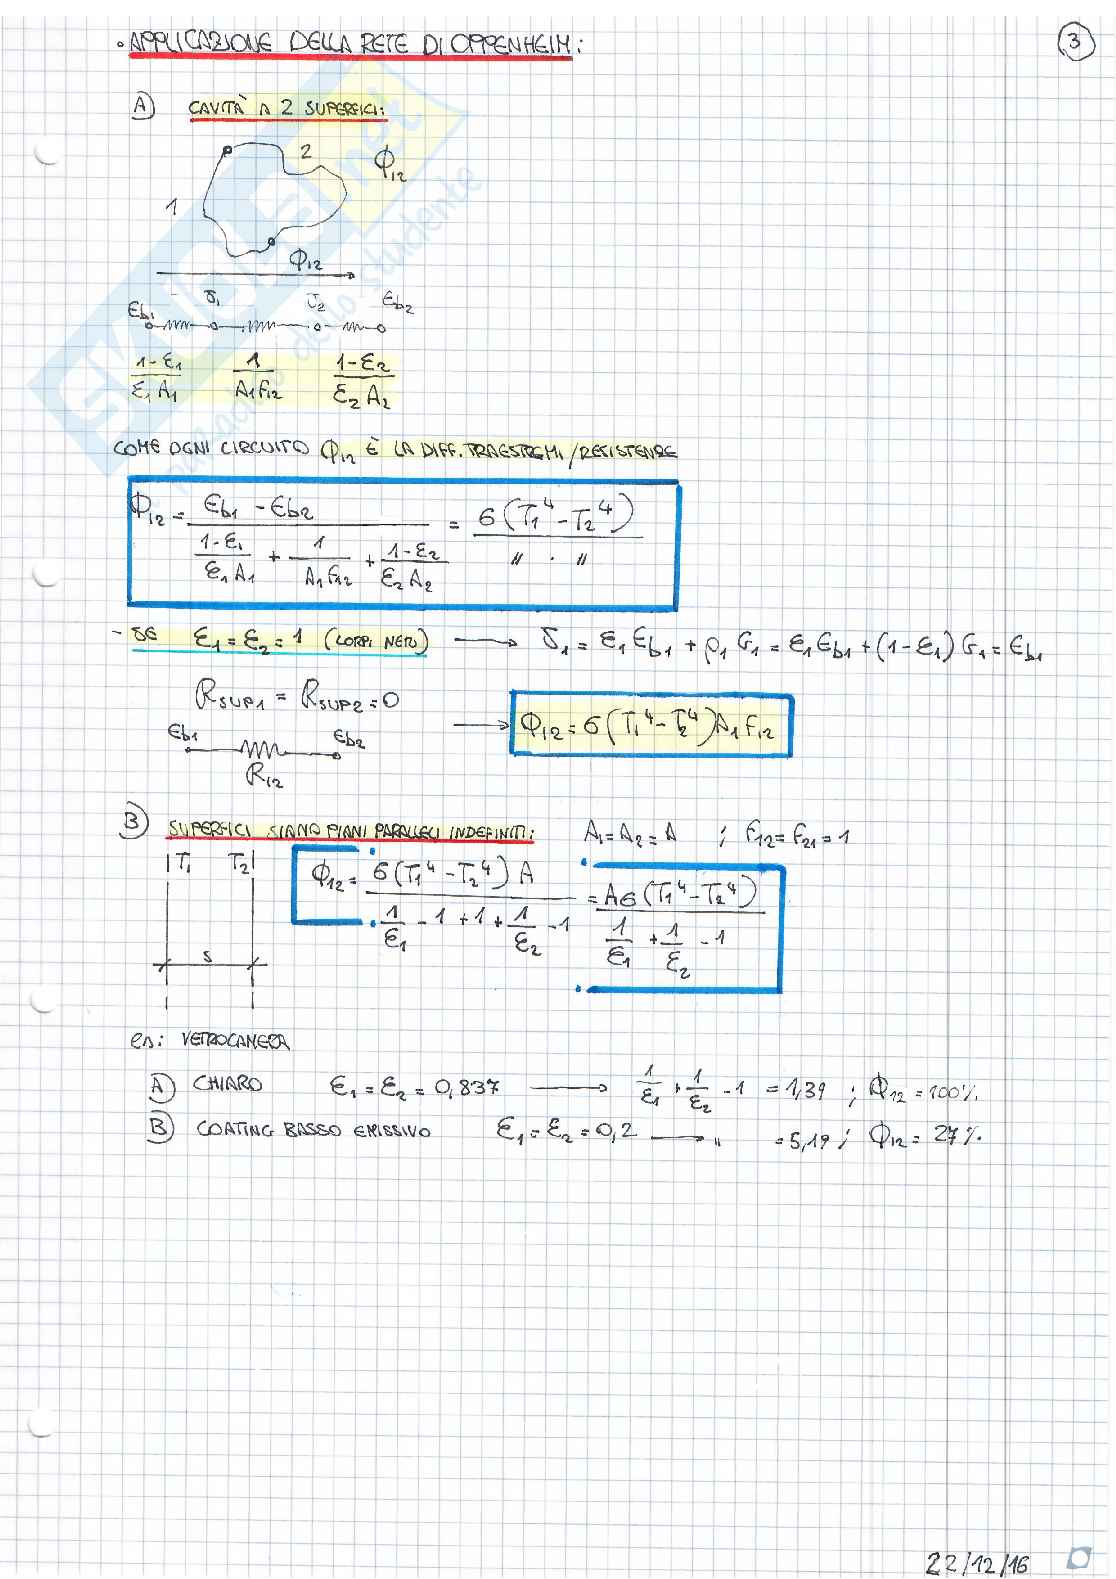 • APPLICAZIONE DELLA RETE DI OPPENHEIM:
3
A) CAVITÀ A 2 SUPERFICI:
1 2 Φ12
Φ12
Eb1 J1 J2 Eb2
(1-ε1)/(ε1 A1) 1/(A1 F12) (1-ε2)/(ε2 A2)
COME OGNI CIRCUITO Φ12 È LA DIFF. TRA ESTREMI / RESISTENZE
Φ12 = (Eb1 - Eb2)/((1-ε1)/(ε1 A1) + 1/(A1 F12) + (1-ε2)/(ε2 A2)) = σ(T1^4 - T2^4)/(" . ")
- SE ε1 = ε2 = 1 (CORPI NERO) → J1 = ε1 Eb1 + ρ1 G1 = ε1 Eb1 + (1-ε1) G1 = Eb1
RSUP1 = RSUP2 = 0
Eb1 Eb2 → Φ12 = σ(T1^4 - T2^4) A1 F12
R12
B) SUPERFICI SIANO PIANI PARALLELI INDEFINITI: A1 = A2 = A ; F12 = F21 = 1
T1 T2 Φ12 = σ(T1^4 - T2^4) A/(1/ε1 - 1 + 1 + 1/ε2 - 1) = Aσ(T1^4 - T2^4)/(1/ε1 + 1/ε2 - 1)
S
es: VETROCAMERA
A) CHIARO ε1 = ε2 = 0,837 → 1/ε1 + 1/ε2 - 1 = 1,39 ; Φ12 = 100%
B) COATING BASSO EMISSIVO ε1 = ε2 = 0,2 → " = 5,19 ; Φ12 = 27%
22/12/16
SKUOLA.net
paradiso dello studente